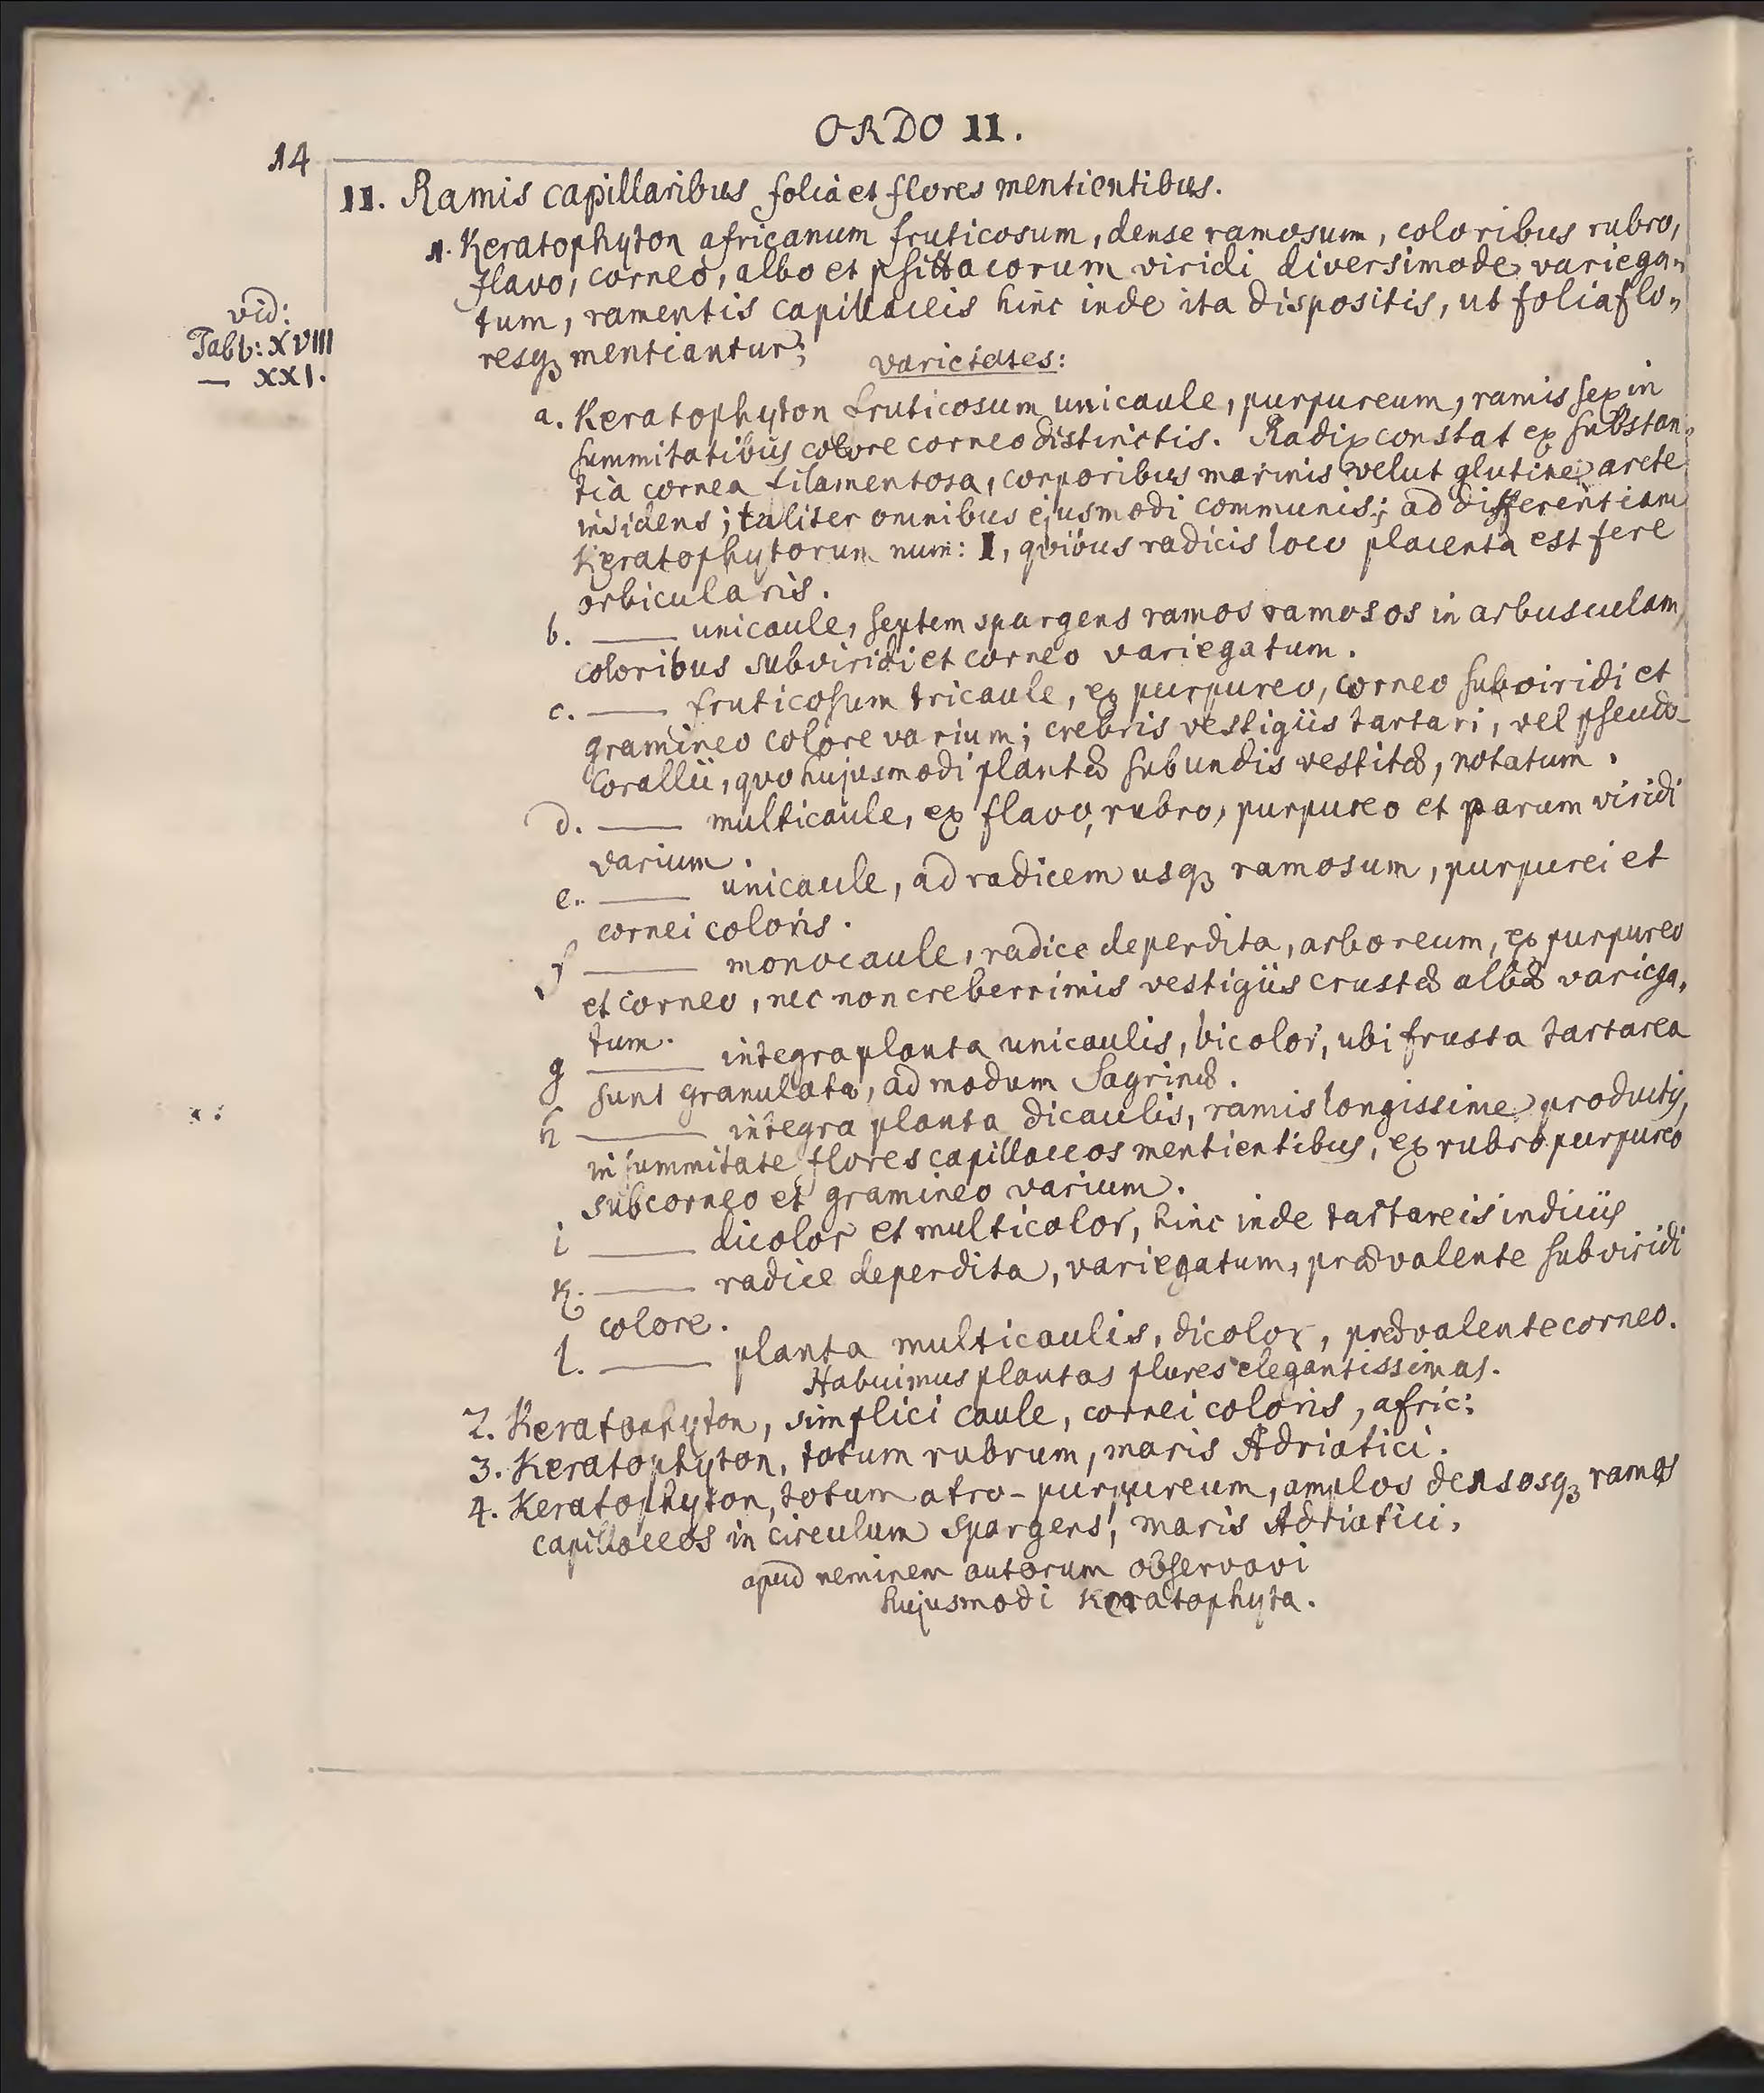 ORDO II.
14
II. Ramis capillaribus folia et flores mentientibus.
1. Keratophyton africanum fruticosum, dense ramosum, coloribus rubro,
flavo, corneo, albo et psittacorum viridi diversimode variega„
tum, ramentis capillaceis hinc inde ita dispositis, ut folia flo„
resq; mentiantur;
vid:
Tabb: XVIII
— XXI.
varietates:
a. Keratophyton fruticosum unicaule, purpureum, ramis sex in
summitatibus colore corneo distinctis. Radix constat ex substan„
tia cornea filamentosa, corporibus marinis velut glutine arcte
insidens; taliter omnibus ejusmodi communis; ad differentiam
Keratophytorum num: I, qvibus radicis loco placenta est fere
orbicularis.
b. — unicaule, septem spargens ramos ramosos in arbusculam,
coloribus subviridi et corneo variegatum.
c. — fruticosum tricaule, ex purpureo, corneo subviridi et
gramineo colore varium; crebris vestigiis tartari, vel pseudo-
Corallii, qvo hujusmodi plantæ sub undis vestitæ, notatum.
d. — multicaule, ex flavo, rubro, purpureo et parum viridi
varium.
e. — unicaule, ad radicem usq; ramosum, purpurei et
cornei coloris.
f — monocaule, radice deperdita, arboreum, ex purpureo
et corneo, nec non creberrimis vestigiis crustæ albæ variega„
tum.
g — integra planta unicaulis, bicolor, ubi frusta tartarea
sunt granulata, ad modum Sagrinæ.
h — integra planta dicaulis, ramis longissime productis,
in summitate flores capillaceos mentientibus, ex rubro purpureo
subcorneo et gramineo varium.
i — dicolor et multicolor, hinc inde tartareis indiciis
k. — radice deperdita, variegatum, prævalente subviridi
colore.
l. — planta multicaulis, dicolor, prævalente corneo.
Habuimus plantas plures elegantissimas.
2. Keratophyton, simplici caule, cornei coloris, afric:
3. Keratophyton, totum rubrum, maris Adriatici.
4. Keratophyton, totum atro-purpureum, amplos densosq; ramos
capillaceos in circulum spargens, maris Adriatici,
apud neminem autorum observavi
hujusmodi Keratophyta.